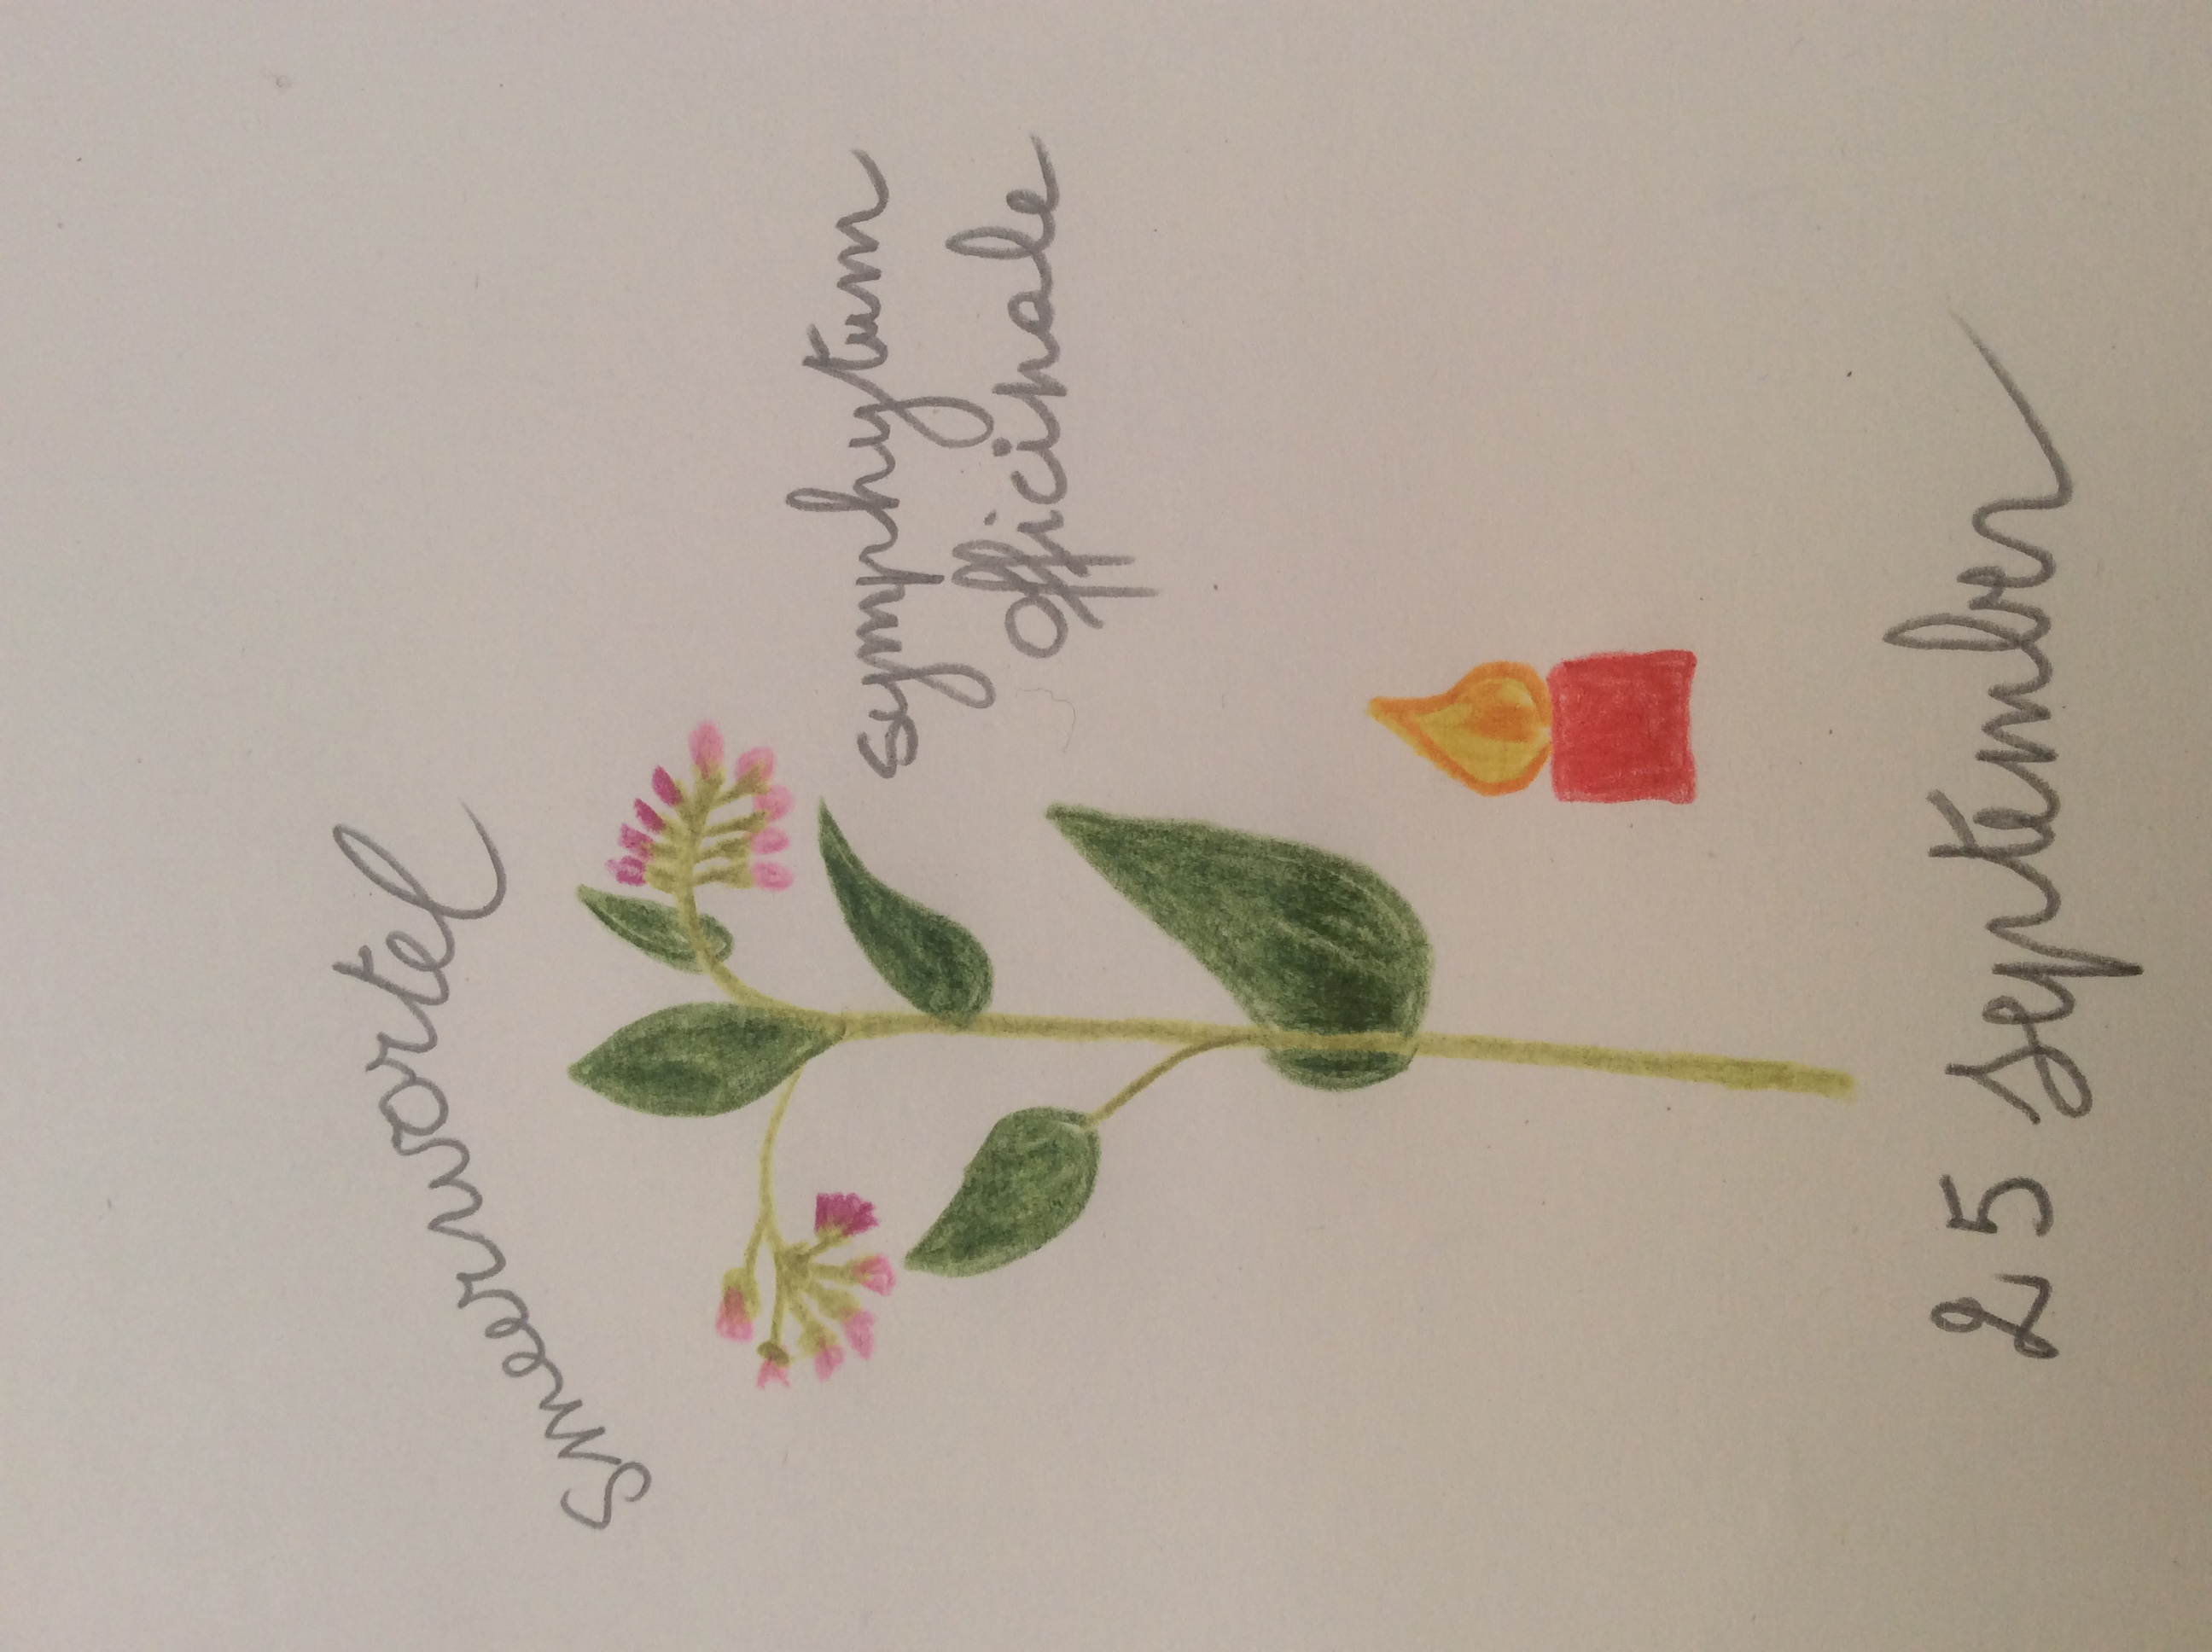 smeerwortel
symphytum
officinale
25 september